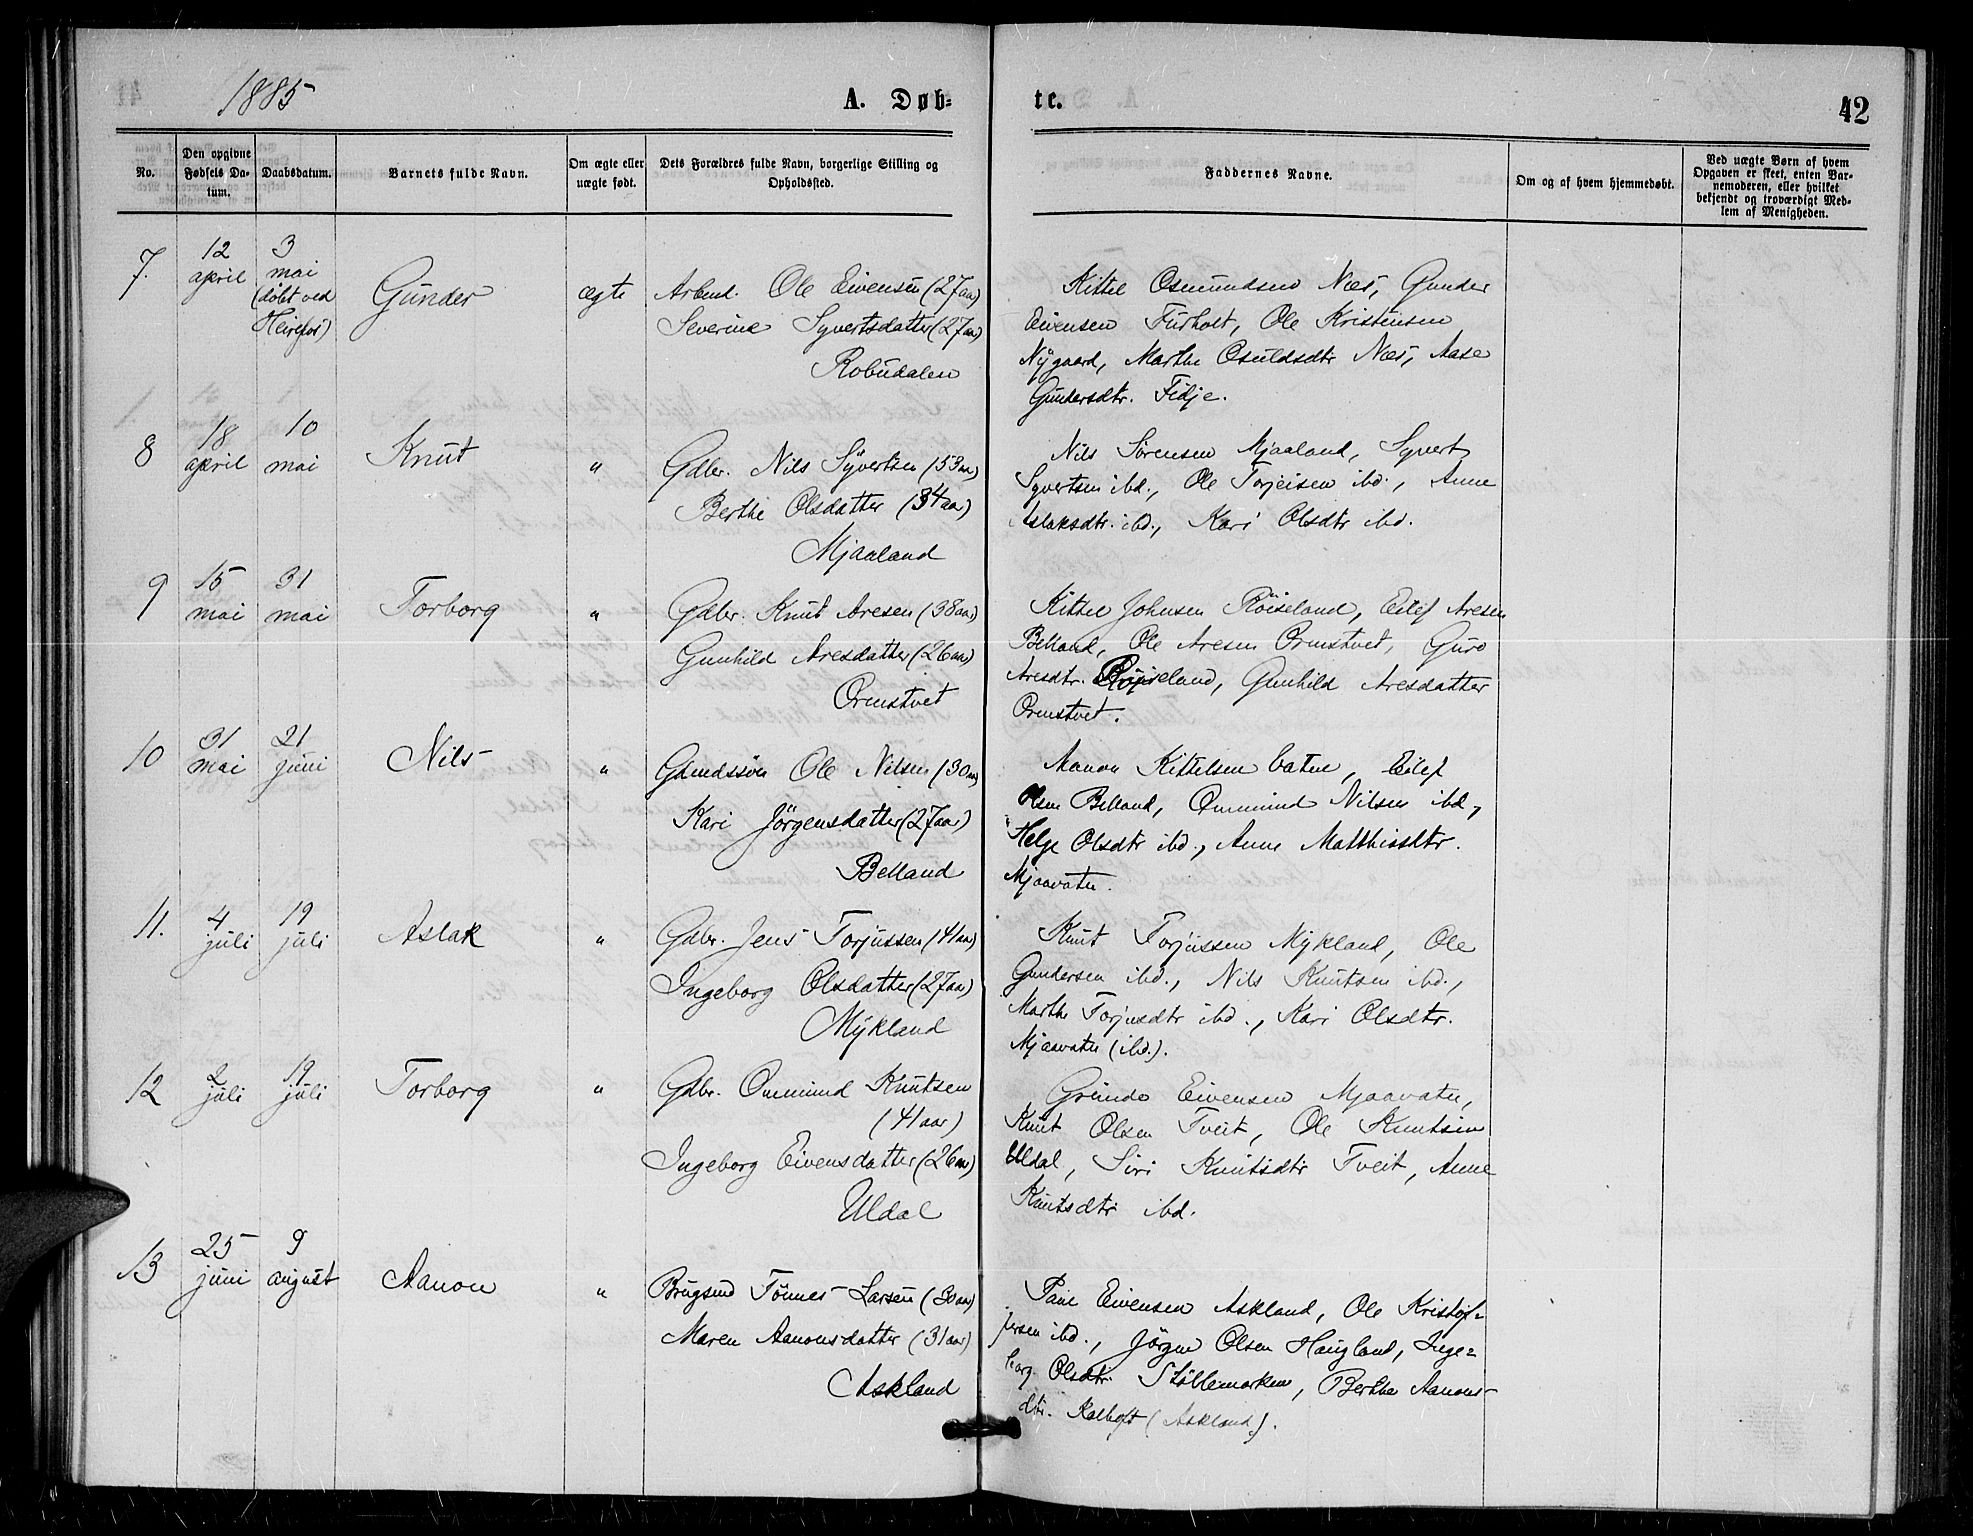 1885
A. Døb-
te.
42
No.
Den opgivne Fødsels Da-
tum.
Daabsdatum.
Barnets fulde Navn.
Om ægte eller
uægte født.
Dets Forældres fulde Navn, borgerlige Stilling og
Opholdssted.
Faddernes Navne.
Om og af hvem hjemmedøbt.
Ved uægte Børn af hvem
Opgaven er skeet, enten Bar-
nemoderen, eller hvilket
bekjendt og troværdigt Med-
lem af Menigheden.
7.
12
april
3
mai
(døbt ved
Heirefos)
Gunder
ægte
Arbmd. Ole Eivensen (27 aar)
Severine Syvertsdatter (27 aar)
Robudalen
Kittel Osmundsen Næs, Gunder
Eivensen Furholt, Ole Kristensen
Nygaard, Marthe Osuldsdtr Næs, Aase
Gundersdtr. Fidje.
8
18
april
10
mai
Knut
"
Gdbr. Nils Syvertsen (53 aar)
Berthe Olsdatter (34 aar)
Mjaaland
Nils Sørensen Mjaaland, Syvert
Syvertsen ibd., Ole Torjeisen ibd., Anne
Aslaksdtr. ibd., Kari Olsdtr ibd.
9
15
mai
31
mai
Torborg
"
Gdbr. Knut Aresen (38 aar)
Gunhild Aresdatter (26 aar)
Ormstvet
Kittel Johnsen Røiseland, Eilef Aresen
Belland, Ole Aresen Ormstvet, Guro
Aresdtr. Røiseland, Gunhild Aresdatter
Ormstvet.
10
31
mai
21
juni
Nils
"
Gmdssøn Ole Nilsen (30 aar)
Kari Jörgensdatter (27 aar)
Belland
Aanon Kittelsen Vatne, Eilef
Olsen Belland, Ommund Nilsen ibd,
Helge Olsdtr ibd., Anne Matthisdtr.
Mjaavatn.
11.
4
juli
19
juli
Aslak
"
Gdbr. Jens Torjussen (41 aar)
Ingeborg Olsdatter (27 aar)
Mykland
Knut Torjussen Mykland, Ole
Gundersen ibd., Nils Knutsen ibd.,
Marthe Torjusdtr ibd., Kari Olsdtr.
Mjaavatn (ibd.).
12
2
juli
19
juli
Torborg
"
Gdbr. Ommund Knutsen
(41 aar)
Ingeborg Eivensdatter (26 aar)
Uldal
Eivensen Mjaavatn,
Knut Olsen Tveit, Ole Knutsen
Uldal, Siri Knutsdtr Tveit, Anne
Knutsdtr ibd.
13
25
juni
9
august
Aanon
"
Brugsmd Tönnes Larsen (30 aar)
Maren Aanonsdatter (31 aar)
Askland
Eivensen Askland, Ole Kristof-
fersen ibd., Jörgen Olsen Haugland, Inge-
borg Olsdtr. Stöllemarken, Berthe Aanons-
dtr. Kalhoft (Askland).